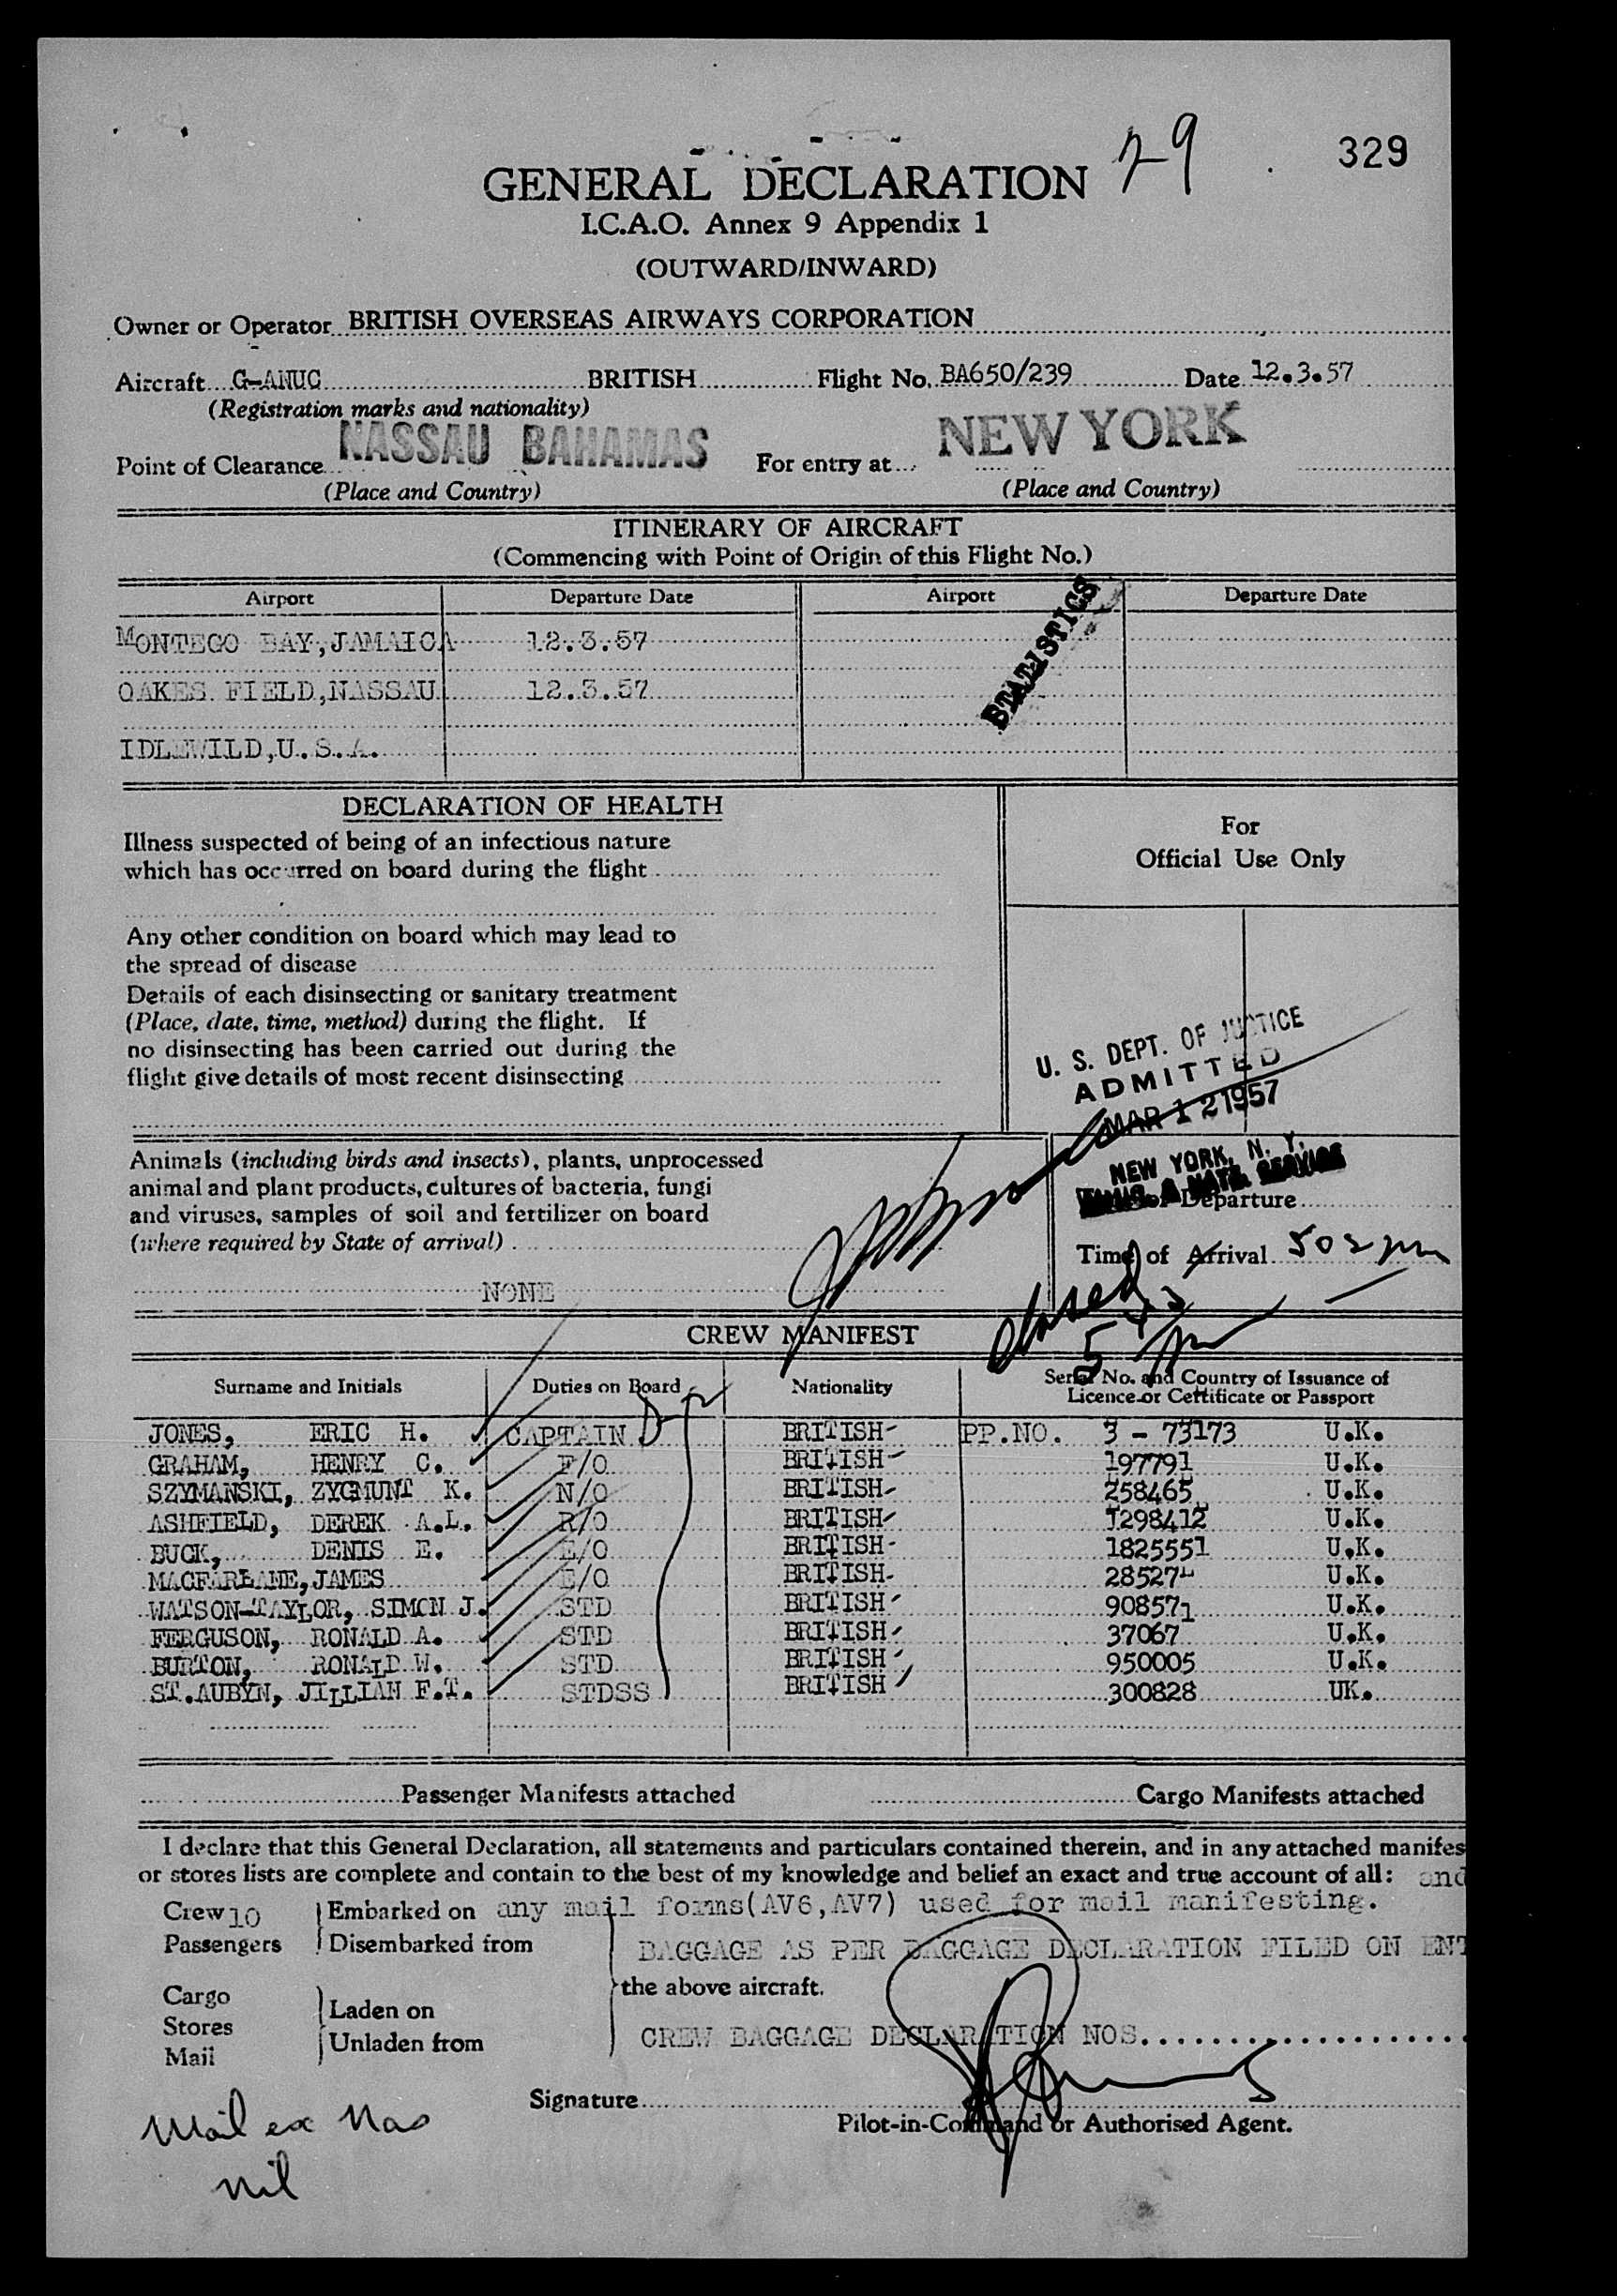 329
79
GENERAL DECLARATION
I.C.A.O. Annex 9 Appendix 1
(OUTWARD/INWARD)
Owner or Operator BRITISH OVERSEAS AIRWAYS CORPORATION
Aircraft G-ANUC BRITISH Flight No. BA650/239 Date 12.3.57
(Registration marks and nationality)
Point of Clearance NASSAU BAHAMAS For entry at NEW YORK
(Place and Country) (Place and Country)
ITINERARY OF AIRCRAFT
(Commencing with Point of Origin of this Flight No.)
Airport Departure Date Airport Departure Date
MONTEGO BAY, JAMAICA 12.3.57
STATISTICS
OAKES FIELD, NASSAU 12.3.57
IDLEWILD, U.S.A.
DECLARATION OF HEALTH
Illness suspected of being of an infectious nature
which has occurred on board during the flight
Any other condition on board which may lead to
the spread of disease
Details of each disinsecting or sanitary treatment
(Place, date, time, method) during the flight. If
no disinsecting has been carried out during the
flight give details of most recent disinsecting
For
Official Use Only
U. S. DEPT. OF JUSTICE
ADMITTED
MAR 12 1957
NEW YORK, N. Y.
IMMIG. & NATZ. SERVICE
Animals (including birds and insects), plants, unprocessed
animal and plant products, cultures of bacteria, fungi
and viruses, samples of soil and fertilizer on board
(where required by State of arrival)
NONE
of Departure
Time of Arrival 502 pm
closed
CREW MANIFEST
Surname and Initials Duties on Board Nationality Serial No. and Country of Issuance of
Licence or Certificate or Passport
JONES, ERIC H. CAPTAIN BRITISH PP.NO. 3 - 73173 U.K.
GRAHAM, HENRY C. F/O BRITISH 197791 U.K.
SZYMANSKI, ZYGMUNT K. N/O BRITISH 258465 U.K.
ASHFIELD, DEREK A.L. R/O BRITISH 1298412 U.K.
BUCK, DENIS E. E/O BRITISH 1825551 U.K.
MACFARLANE, JAMES E/O BRITISH 285274 U.K.
WATSON-TAYLOR, SIMON J. STD BRITISH 908571 U.K.
FERGUSON, RONALD A. STD BRITISH 37067 U.K.
BURTON, RONALD W. STD BRITISH 950005 U.K.
ST.AUBYN, JILLIAN F.T. STDSS BRITISH 300828 UK.
Passenger Manifests attached Cargo Manifests attached
I declare that this General Declaration, all statements and particulars contained therein, and in any attached manifes
or stores lists are complete and contain to the best of my knowledge and belief an exact and true account of all: and
Crew 10 Embarked on any mail forms(AV6,AV7) used for mail manifesting.
Passengers Disembarked from BAGGAGE AS PER BAGGAGE DECLARATION FILED ON ENT
the above aircraft.
Cargo
Stores
Mail
Laden on
Unladen from
CREW BAGGAGE DECLARATION NOS....................
Signature
Pilot-in-Command or Authorised Agent.
Mail ex Nas
nil